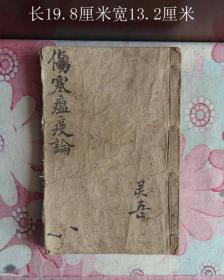 长19.8厘米宽13.2厘米
傷寒瘟疫論